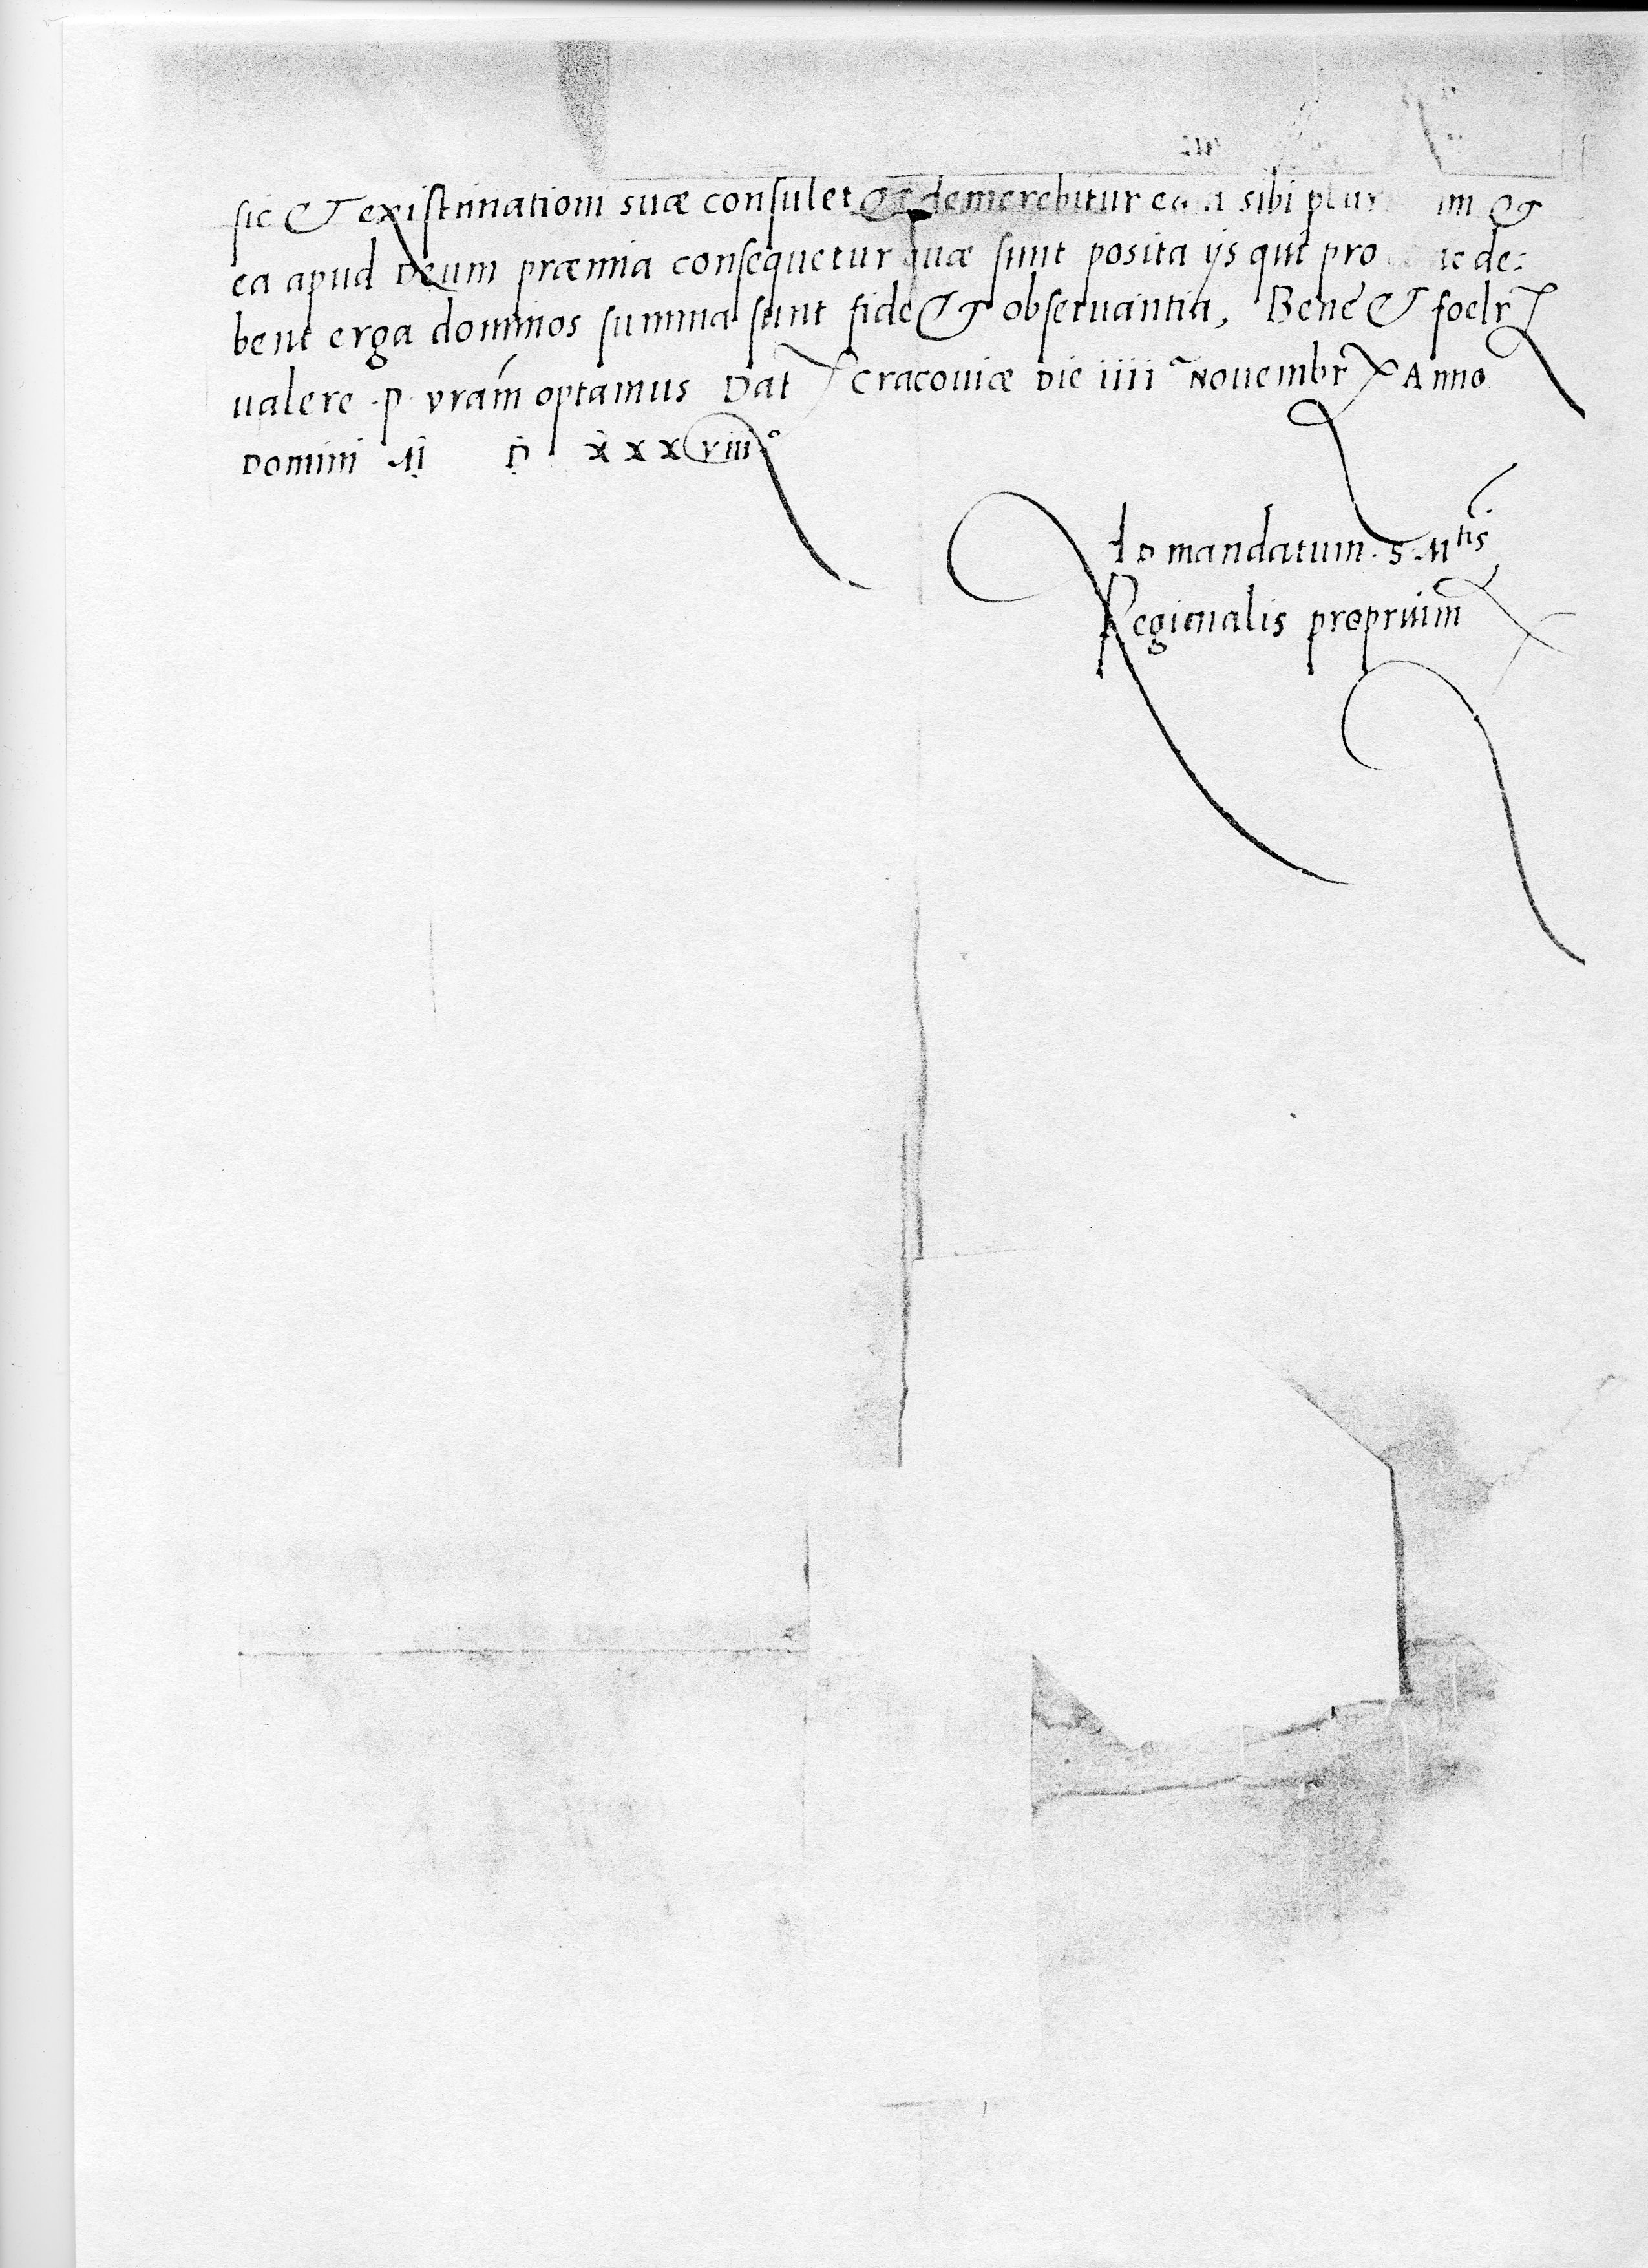 sic & existimationi suæ consulet & demerebitur sibi &
ea apud Deum præmia consequetur quæ sunt posita ijs qui pro de:
bent erga dominos summa sunt fide & obseruantia, Bene & foelr
ualere .P. vram optamus Dat Cracouiæ Die iiii Nouembr Anno
Domini M D xxxviii°
Ad mandatum. S. M^tis
Reginalis proprium